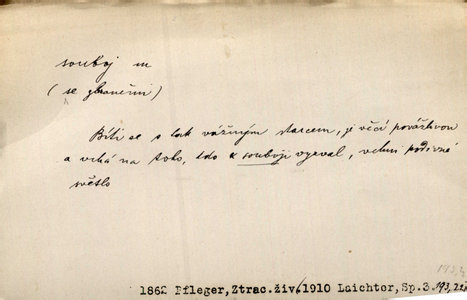 souboj m
(se zbraněmi)
Bíti se s tak vážným starcem, je věcí povážlivou
a vrhá na toho, kdo k souboji vyzval, velmi podivné
světlo
193,4
1862 Pfleger, Ztrac. živ. 1910 Laichter, Sp. 3.